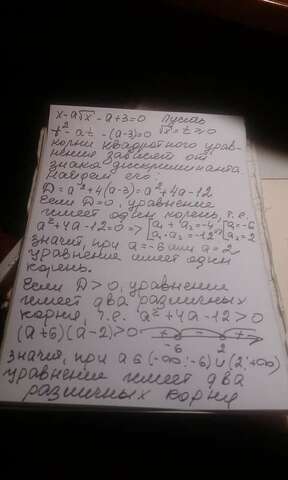 x - a√x - a + 3 = 0 Пусть
t² - at - (a-3) = 0 √x = t ≥ 0
корни квадратного урав-
нения зависят от
знака дискриминанта.
Найдем его:
D = a² + 4(a-3) = a² + 4a - 12
Если D = 0, уравнение
имеет один корень, т.е.
a² + 4a - 12 = 0 => [a₁ + a₂ = -4 [a₁ = -6
[a₁ · a₂ = -12 [a₂ = 2
значит, при a = -6 или a = 2
уравнение имеет один
корень.
Если D > 0, уравнение
имеет два различных
корня, т.е. a² + 4a - 12 > 0
(a+6)(a-2) > 0 + - +
-6 2
значит, при a ∈ (-∞; -6) ∪ (2; +∞)
уравнение имеет два
различных корня